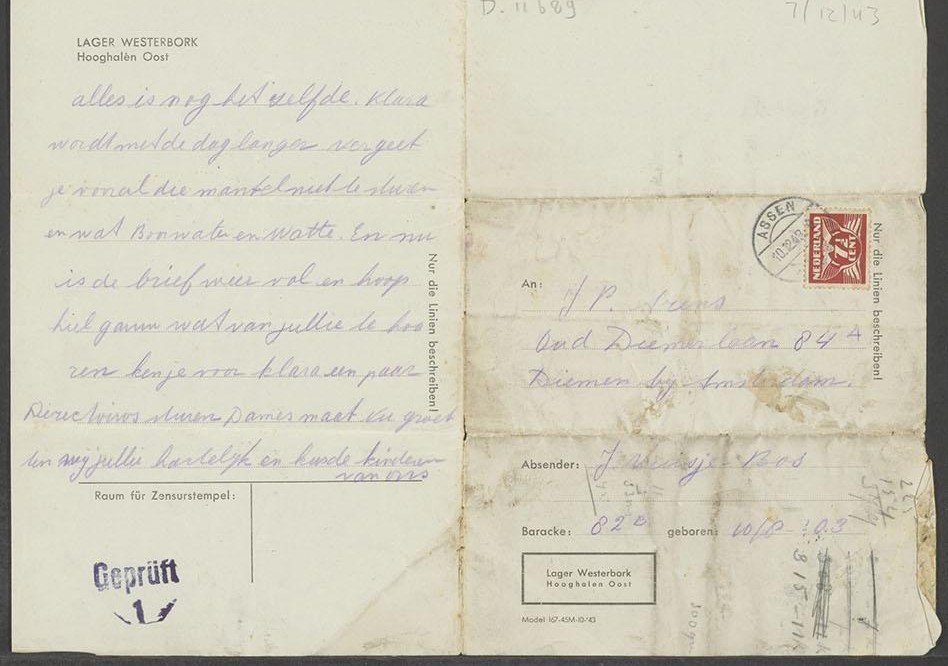 D. 11689
7/12/43
LAGER WESTERBORK
Hooghalèn Oost
alles is nog het zelfde. Klara
wordt met de dag langer vergeet
je vooral die mantel niet te sturen
en wat Boorwater en Watte. En nu
is de brief weer vol en hoop
hiel gauw wat van jullie te hoo
ren ken je voor Klara een paar
Directoiros sturen Dames maat nu groet
ten wij jullie hartelijk en kusde kinderen
van ons
Nur die Linien beschreiben!
Raum für Zensurstempel:
Geprüft
1
ASSEN
10.12.43
NEDERLAND
7½
CENT
Nur die Linien beschreiben!
An: J P.
Oud Diemerlaan 84 A
Diemen by Amsterdam.
Absender: J Bos
Baracke: 82 B geboren: 10/8-'03
Lager Westerbork
Hooghalen Oost
Model 167-45M-10-'43